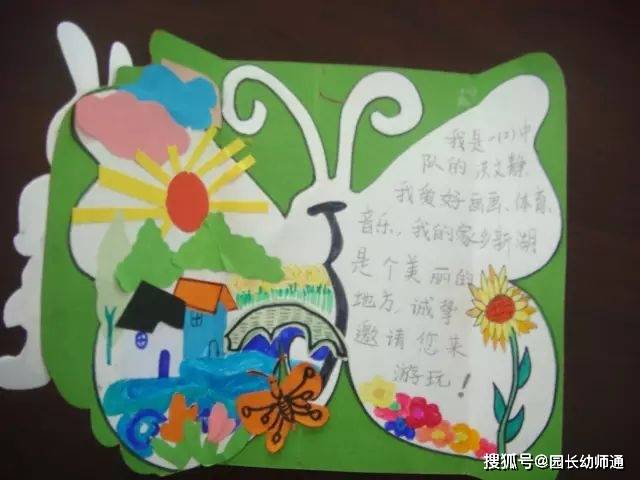 我是一(2)中
队的洪文静.
我爱好画画、体育、
音乐,我的家乡新湖
是个美丽的
地方,诚挚
邀请您来
游玩!
搜狐号@园长幼师通